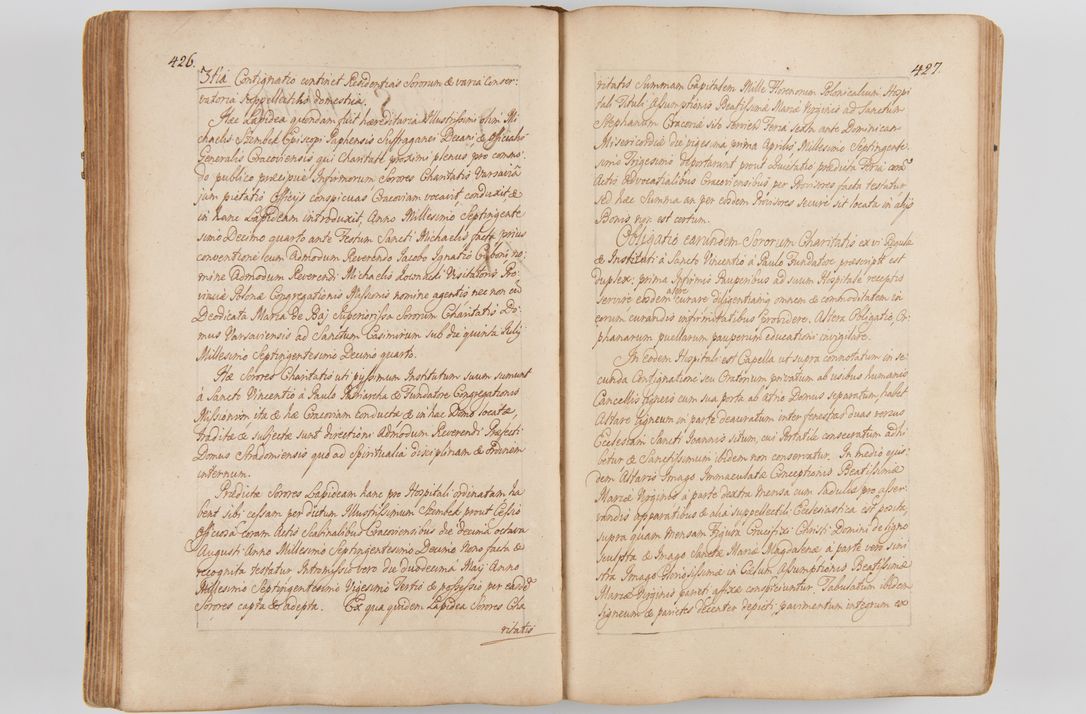 426.
3tia Contignatio continet Residentias Sororum & varia Conser:
vatoria suppellectilis domesticæ.
Hæc Lapidea quondam fuit hæreditaria Illustrissimi olim Mi-
chaelis Szembek Episcopi Paphensis Suffraganei Decani & Officialis
Generalis Cracoviensis qui Charitate proximi plenus pro commo
do publico præcipue Infirmorum Sorores Charitatis Varsaviâ
jam pietatis Officijs conspicuas Cracoviam vocavit conduxit &
in hanc Lapideam introduxit, Anno Millesimo Septingente
simo Decimo quarto ante Festum Sancti Michaelis facta prius
conventione cum Admodum Reverendo Jacobo Ignatio Cyboni no-
mine Admodum Reverendi Michaelis Visitatoris Pro-
vinciæ Polonæ Congregationis Missionis nomine agentis nec non cu
Dedicata Maria De Baj Superiorissa Sororum Charitatis Do-
mus Varsaviensis ad Sanctum Casimirum sub die quinta Julij
Millesimo Septingentesimo Decimo quarto.
Hæ Sorores Charitatis uti pijssimum Institutum suum sumunt
á Sancto Vincentio á Paulo Patriarcha & Fundatore Congregationis
Missionum ita & hæ Cracoviam conductæ & in hac Domo locatæ,
traditæ & subjectæ sunt directioni Admodum Reverendi Præfecti
Domus Stradomiensis quo ad spiritualia disciplinam & ordinem
internum.
Prædictæ Sorores Lapideam hanc pro Hospitali ordinatam ha
bent sibi cessam per dictum Illustrissimum Szembek prout Cessio
Officiosa coram Actis Scabinalibus Cracoviensibus die decima octava
Augusti Anno Millesimo Septingentesimo Decimo Nono facta &
recognita testatur Intromissio vero die duodecima Maij Anno
Millesimo Septingentesimo Vigesimo Tertio & possessio per easde
Sorores capta & adepta. Ex qua quidem Lapidea Sorores Cha
ritatis
427.
ritatis Summam Capitalem Mille Florenorum Polonicalium Hospi
tali Tituli Assumptionis Beatissimæ Mariæ Virginis ad Sanctum
Stephanum Cracoviæ sito Feria sexta ante Dominicam
Misericordiæ die vigesima prima Aprilis Millesimo Septingente
simo Trigesimo deportarunt prout Quietatio prædicta Feria corã
Actis Advocatialibus Cracoviensibus per Provisores facta testatur
sed hæc Summa an per eosdem Provisores secure sit locata in alijs
Bonis non est certum.
Obligatio earundem Sororum Charitatis ex vi Regulæ
& Instituti á Sancto Vincentio á Paulo Fundatore præscripti est
duplex; prima Infirmis Pauperibus ad suum Hospitale receptis
servire eosdem curare diligentiamq omnem & commoditatem in
eorum curandis infirmitatibus providere. Altera Obligatio, Or-
phanarum puellarum pauperum educationi invigilare.
In Eodem Hospitali est Capella ut supra connotatum in se
cunda Contignatione seu Oratorium privatum ab usibus humanis
Cancellis ligneis cum sua porta ab Atrio Domus separatum, habet
Altare ligneum in parte deauratum inter fenestras duas versus
Ecclesiam Sancti Joannis situm, cui Portatile consecratum adhi
betur & Sanctissimum ibidem non conservatur. In medio ejus-
dem Altaris Imago Immaculatæ Conceptionis Beatissimæ
Mariæ Virginis á parte dextra Mensa cum laduliis pro asser
vandis apparatibus & alia suppellectili Ecclesiastica est posita,
supra quam mensam Figura Crucifixi Christi Domini de ligno
sculpta & Imago Sanctæ Mariæ Magdalenæ á parte vero sini
stra Imago Virginis in Cælum Assumptionis Beatissimæ
Mariæ Virginis parieti affixæ conspiciuntur. Tabulatum ibidem
ligneum & parietes decenter depicti, pavimentum integrum ex